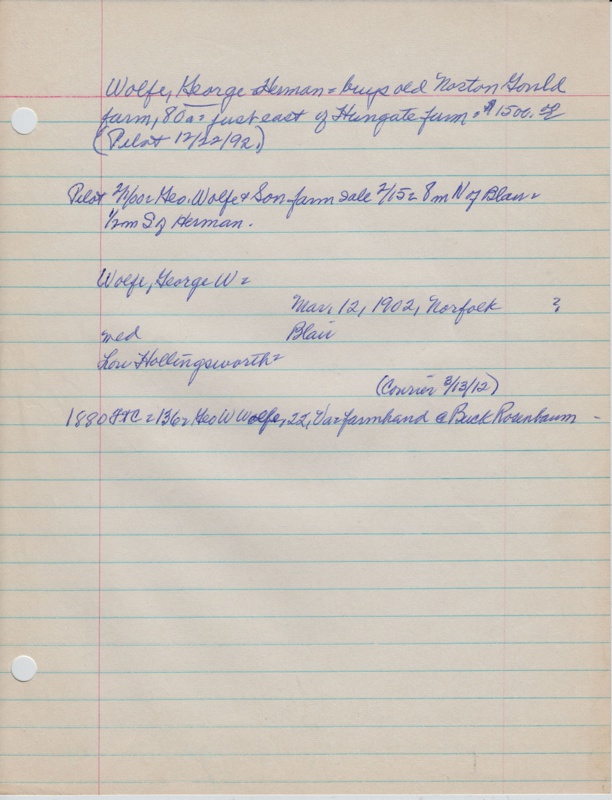 Wolfe, George = Herman = buys old Norton Gould
farm, 80a = just east of Hungate farm = $1500.00
(Pilot 12/22/92)
Pilot 2/1/00 = Geo. Wolfe & Son farm sale 2/15 = 8m N of Blair =
1/2m S of Herman.
Wolfe, George W =
Mar. 12, 1902, Norfolk ?
med Blair
Lou Hollingsworth =
(Courier 3/13/12)
1880 = 136 = Geo W Wolfe, 22, Va = farmhand @ Buck Rosenbaum -